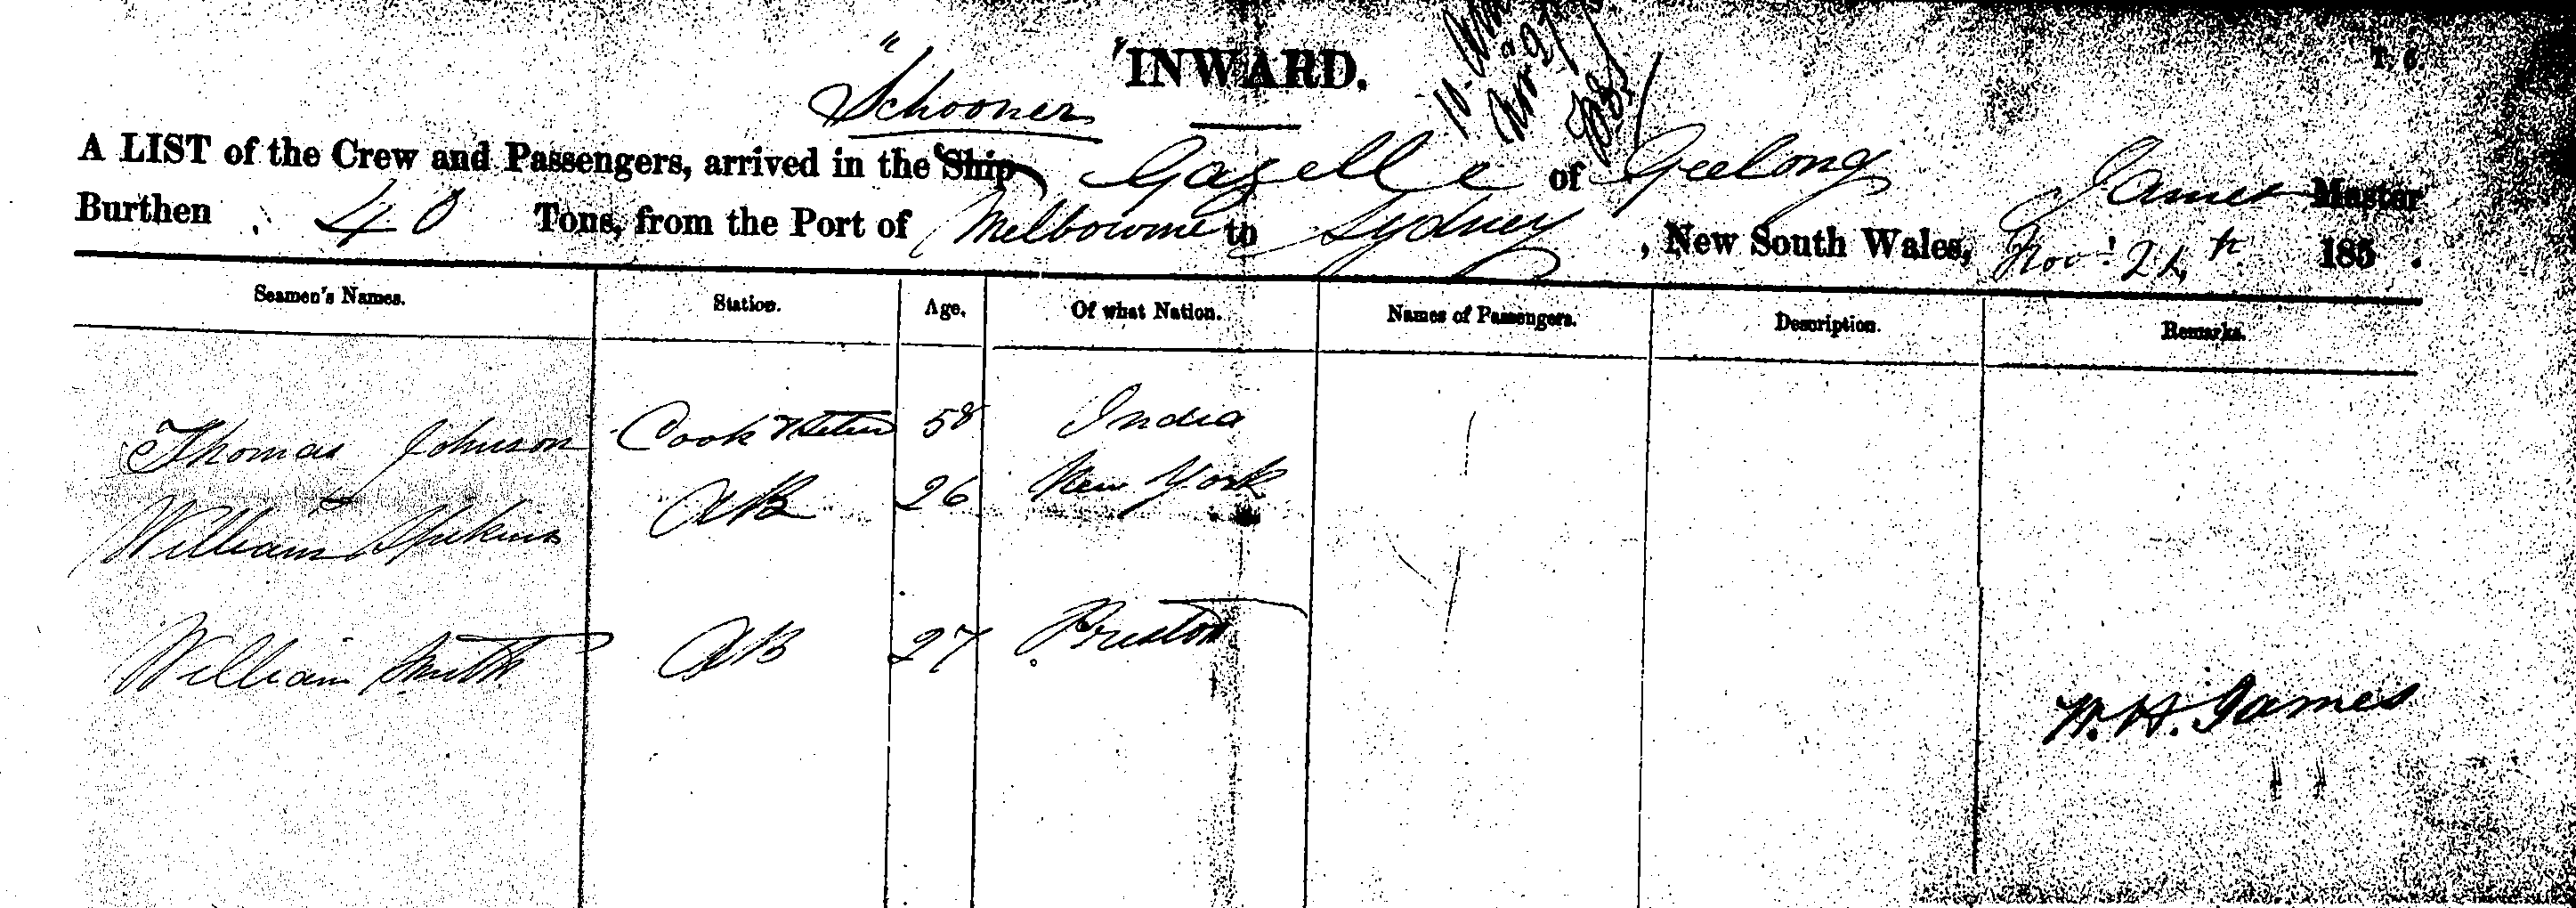 "INWARD.
T. 6.
Schooner
A LIST of the Crew and Passengers, arrived in the Ship Gazelle of Geelong James Master
Burthen 40 Tons, from the Port of Melbourne to Sydney, New South Wales, Novr 24th 185 .
Seamen's Names. Station. Age. Of what Nation. Names of Passengers. Description. Remarks.
Thomas Johnson Cook 58 India
William AB 26 New York
William Smith AB 27 Preston
W. H. James